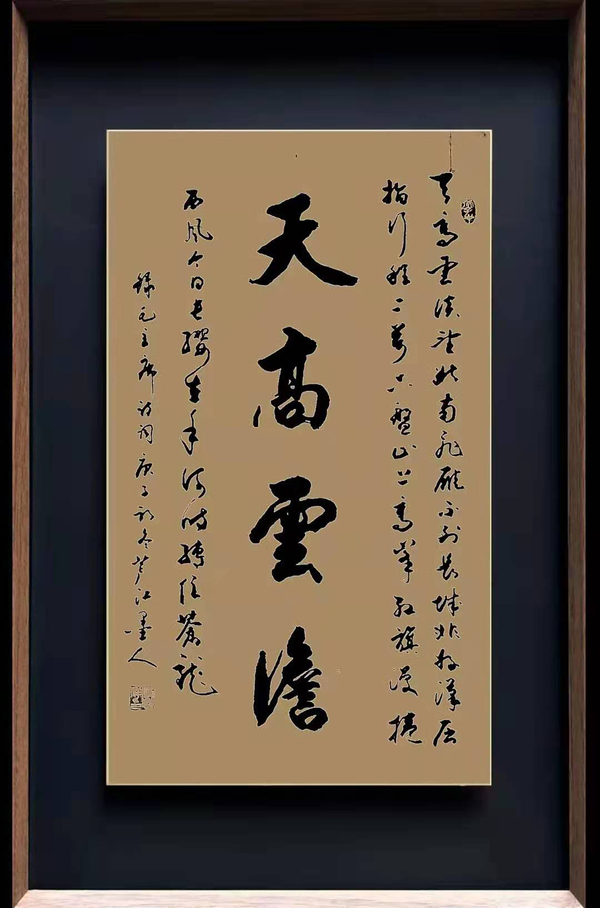 天高雲淡望斷南飛雁不到長城非好漢屈
指行程二萬六盤山上高峰紅旗漫捲
天高雲澹
西風今日長纓在手何時縛住蒼龍
錄毛主席詩詞庚子初冬芦江墨人